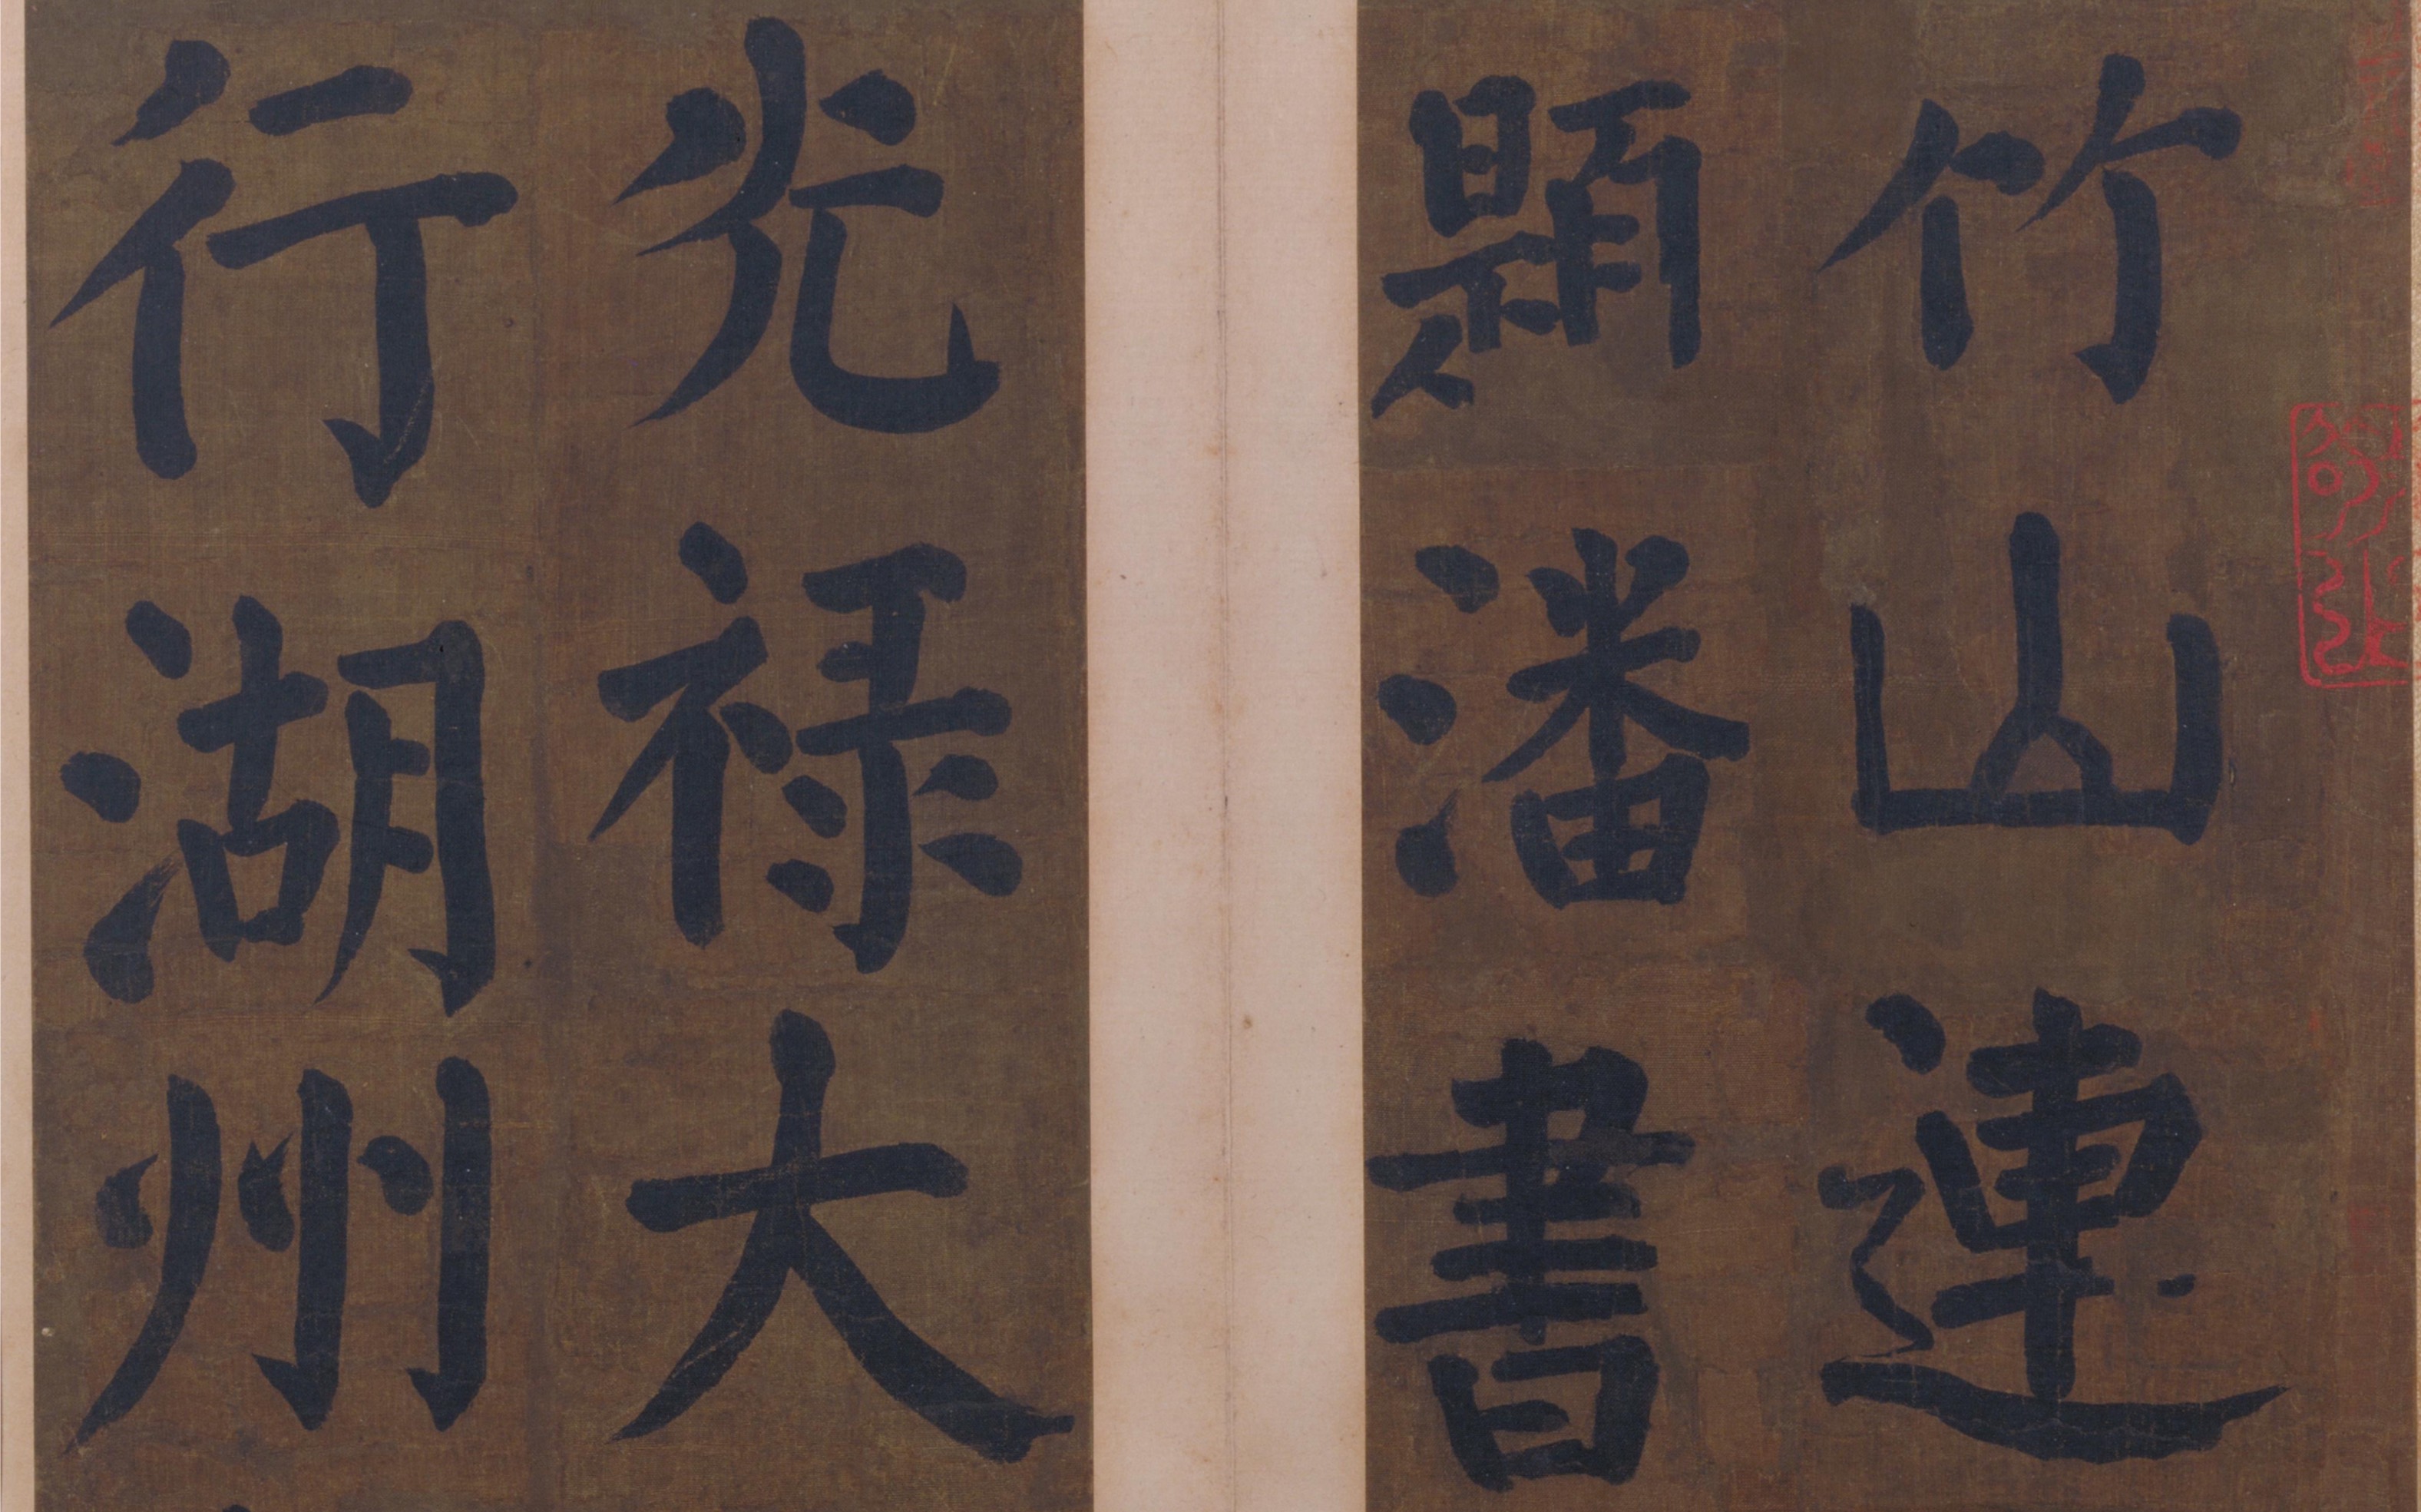 竹山連
題潘書
光禄大
行湖州